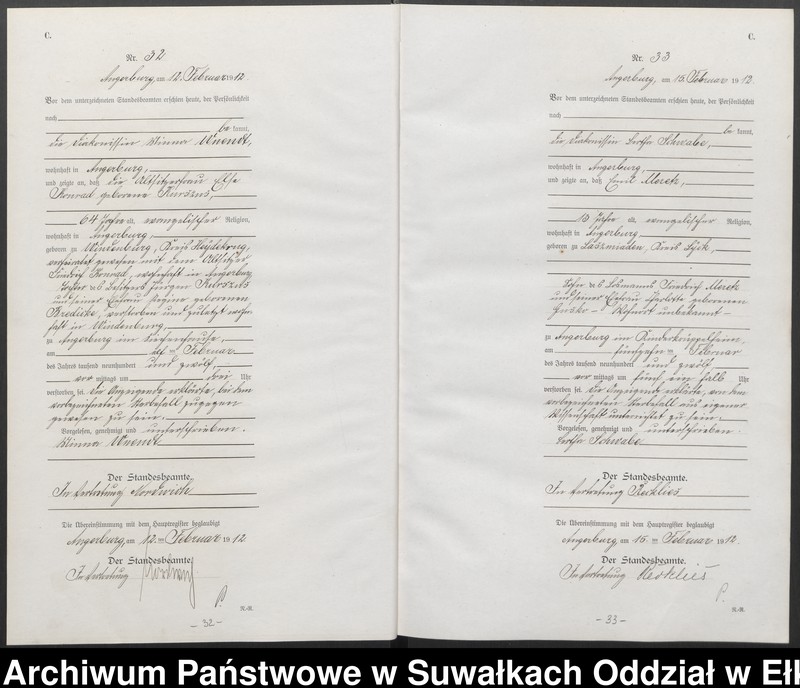 C.
Nr. 32
Angerburg, am 12. Februar 1912.
Vor dem unterzeichneten Standesbeamten erschien heute, der Persönlichkeit
nach
be kannt,
die Diakonissin Minna Unendt,
wohnhaft in Angerburg,
und zeigte an, daß die Altsitzerfrau Else
Konrad geborene Kurszus,
64 Jahre alt, evangelischer Religion,
wohnhaft in Angerburg,
geboren zu Windenburg, Kreis Heydekrug,
verheiratet gewesen mit dem Altsitzer
Friedrich Konrad, wohnhaft in Angerburg,
Tochter des Besitzers Jurgen Kurszus
und seiner Ehefrau geborenen
verstorben und zuletzt wohn-
haft in Windenburg
zu Angerburg im Siechenhause,
am elf ten Februar
des Jahres tausend neunhundert und zwölf,
vor mittags um drei Uhr
verstorben sei. Die Anzeigende erklärte, bei dem
vorbezeichneten Sterbefall zugegen
gewesen zu sein.
Vorgelesen, genehmigt und unterschrieben.
Minna Unendt
Der Standesbeamte.
In Vertretung Nordwich
Die Übereinstimmung mit dem Hauptregister beglaubigt
Angerburg, am 12. ten Februar 1912
Der Standesbeamte.
In Vertretung
R.-R.
- 32 -
C.
Nr. 33
Angerburg, am 15. Februar 1912.
Vor dem unterzeichneten Standesbeamten erschien heute, der Persönlichkeit
nach
be kannt,
die Diakonissin Bertha Schwabe,
wohnhaft in Angerburg,
und zeigte an, daß Emil Merek,
13 Jahre alt, evangelischer Religion,
wohnhaft in Angerburg
geboren zu Kreis Lyck,
Sohn des Losmanns Friedrich Merek
und seiner Ehefrau Charlotte geborenen
Gusko - Wohnort unbekannt -
zu Angerburg im Kinderkrüppelheim,
am fünfzehn ten Februar
des Jahres tausend neunhundert und zwölf
vor mittags um fünf ein halb Uhr
verstorben sei. Die Anzeigende erklärte, von dem
vorbezeichneten Sterbefall aus eigener
Wissenschaft unterrichtet zu sein.
Vorgelesen, genehmigt und unterschrieben.
Bertha Schwabe
Der Standesbeamte.
In Vertretung Reeklies
Die Übereinstimmung mit dem Hauptregister beglaubigt
Angerburg, am 15. ten Februar 1912.
Der Standesbeamte.
In Vertretung Reeklies
R.-R.
- 33 -
Archiwum Państwowe w Suwałkach Oddział w Ełk